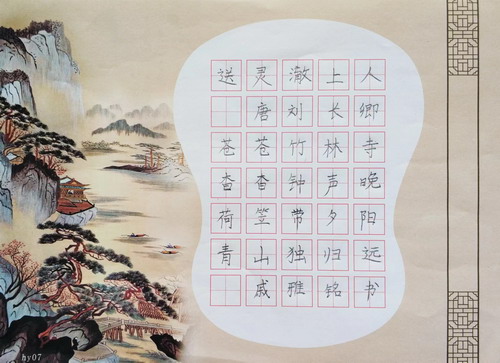 送灵澈上人
唐刘长卿
苍苍竹林寺
杳杳钟声晚
荷笠带夕阳
青山独归远
戚雅铭书
hy07